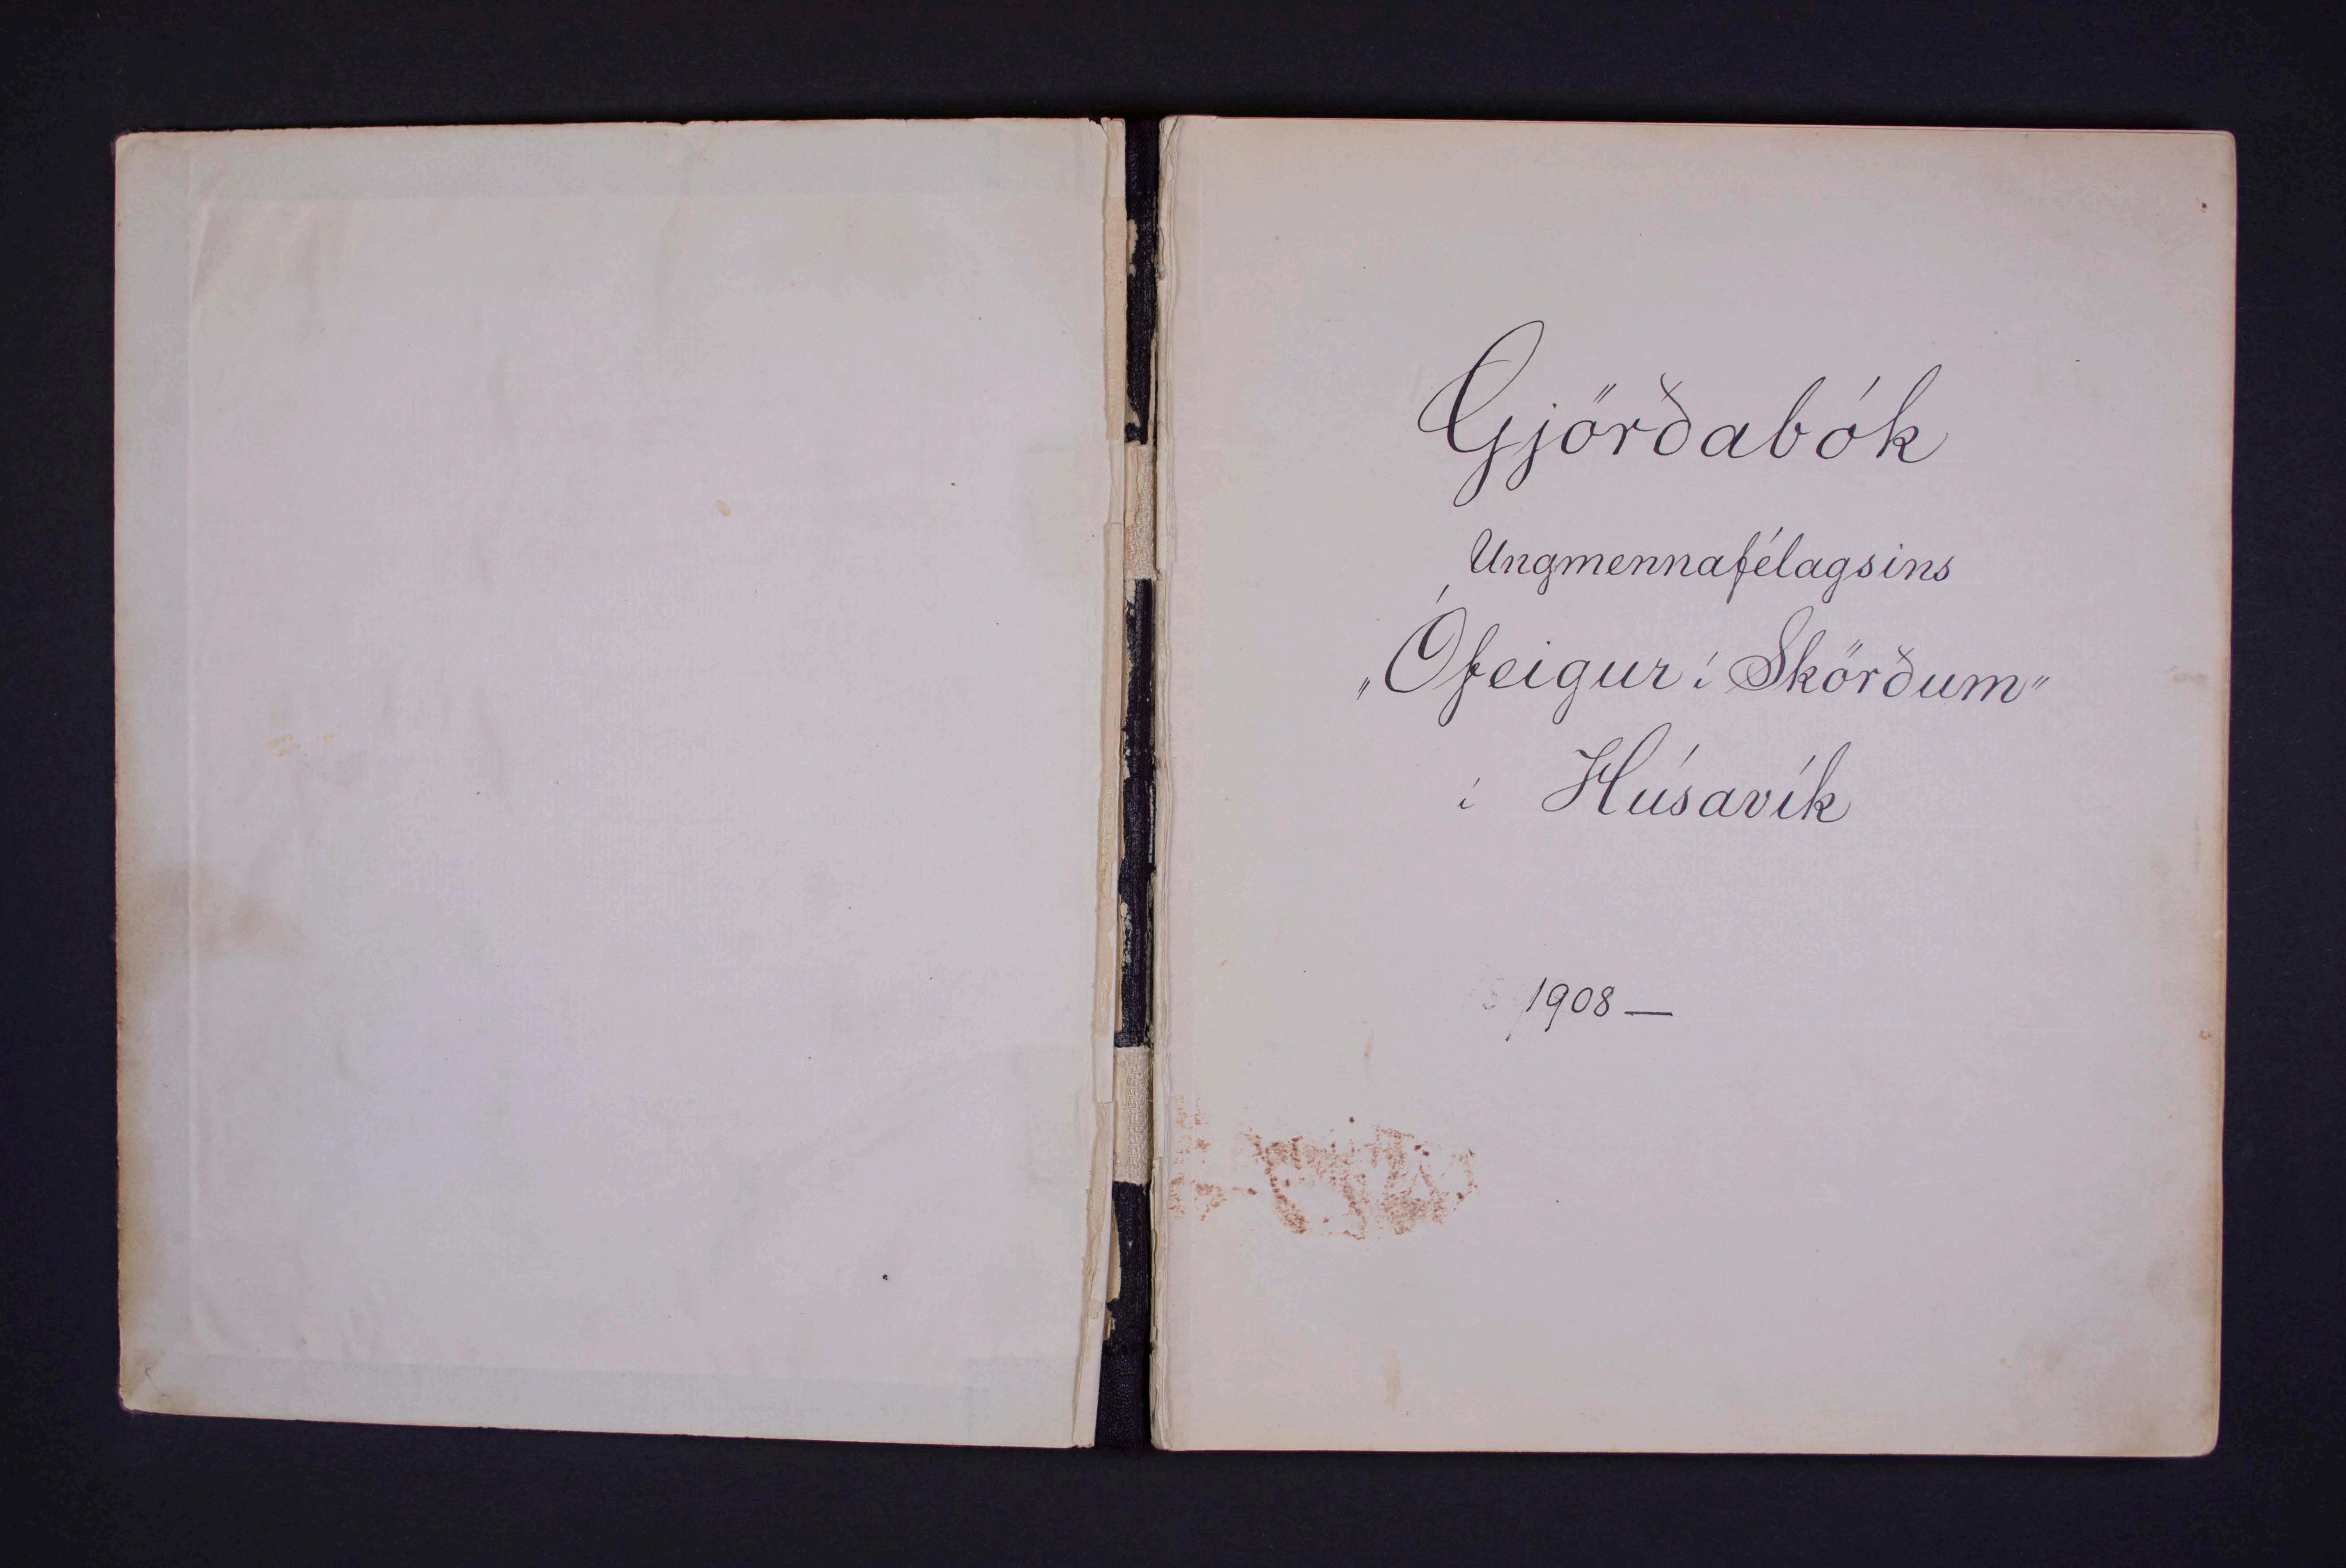 Gjörðabók
Ungmennafélagsins
„Ófeigur í Skörðum“
í Húsavík
1908 —